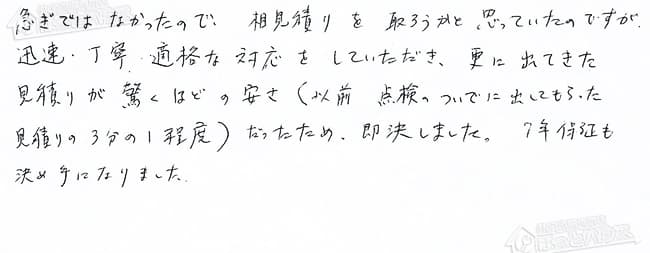 急ぎではなかったので、相見積りを取ろうかと思っていたのですが、
迅速・丁寧・適格な対応をしていただき、更に出てきた
見積りが驚くほどの安さ（以前点検のついでに出してもらった
見積りの3分の1程度）だったため、即決しました。7年保証も
決め手になりました。